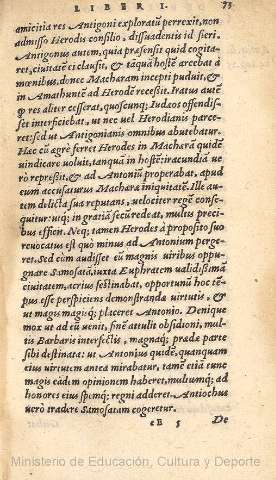 LIBER I. 73
amicitia res Antigoni exploratū perrexit, non
admisso Herodis consilio, dissuadentis id fieri.
Antigonus autem, quia præsensit quid cogita-
ret, ciuitatē ei clausit, & tāquā hostē arcebat à
mœnibus, donec Macharam incepti puduit, &
in Amathuntē ad Herodē recessit. Iratus autē
ꝙ res aliter cesserat, quoscunq; Iudæos offendis-
set interficiebat, ut nec uel Herodianis parce-
ret: sed ut Antigonianis omnibus abutebatur.
Hæc cū ægrè ferret Herodes in Macharā quidē
uindicare voluit, tanquā in hostē: iracundiā ue
rò repreßit, & ad Antoniū properabat, apud
eum accusaturus Macharæ iniquitatē. Ille au-
tem delicta sua reputans, uelociter regē conse-
quitur: uiq; in gratiā secū redeat, multis preci-
bus effecit. Neq; tamen Herodes à proposito suo
reuocatus est quò minus ad Antonium perge-
ret. Sed cùm audisset eū magnis uiribus oppu-
gnare Samosatā, iuxta Euphratem ualidißimā
ciuitatem, acrius festinabat, opportunū hoc tē-
pus esse perspiciens demonstrandæ uirtutis, &
ut magis magisq; placeret Antonio. Denique
mox ut ad eū uenit, finē attulit obsidioni, mul-
tis Barbaris interfectis, magnaq; præda parte
sibi destinata: ut Antonius quidē, quanquam
eius uirtutem antea mirabatur, tamē etiā tunc
magis eādem opinionem haberet, multumq; ad
honores eius spemq; regni adderet. Antiochus
uerò tradere Samosatam cogeretur.
cE 5 De
Ministerio de Educación, Cultura y Deporte